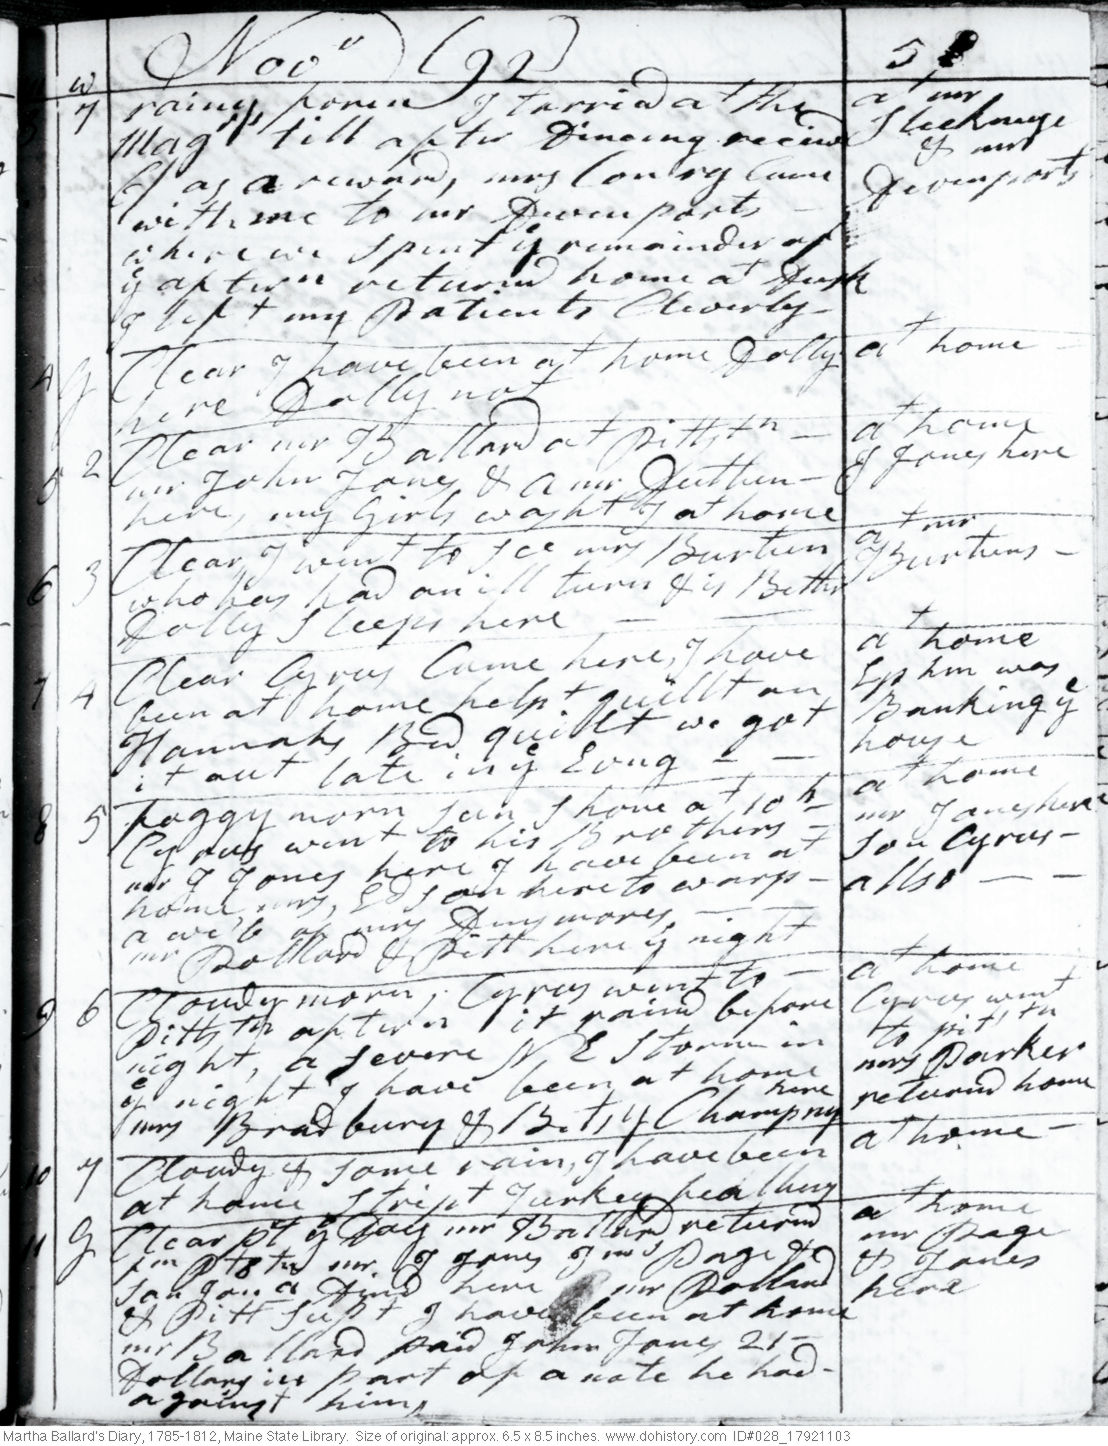 Novr (92) 5
m w
3 7 rainy foren I tarried at the at mr
Magrs till after Dineing receivd Sleehmye
6/ as a reward, mrs Conry Came & mr
with me to mr Devenports — Devenports
where we spent ye remainder of
ye aftern returnd home at Dusk
I left my Patients Cleverly —
4 G Clear I have been at home Dolly at home —
here Dally not
5 2 Clear mr Ballard at Pittstn — at home
mr John Jones & a mr Duthen — J Jones here
here, my Girls washt I at home
6 3 Clear, I went to See mrs Burtun at mr
who has had an ill turn & is Bettr Burtuns —
Dolly Sleeps here — —
7 4 Clear Cyrus Came here, I have at home
been at home helpt quillt on Ephm was
Hannahs Bed quillt we got Banking ye
it out late in ye Evng — — house
8 5 foggy morn sun Shone at 10 h at home
Cyrus went to his Brothers — mr Jones here
mr J Jones here I have been at son Cyrus —
home, mrs, Edson here to warp — allso — —
a web of mrs Densmores, — —
mr Pollard & Pitt here ye night
9 6 Cloudy morn, Cyrus went to — at home
Pittstn aftern it raind before Cyrus went
night, a severe N E Storm in to pittstn
ye night I have been at home mrs Parker
here returnd home
mrs Bradbury & Betsy Champny
10 7 Cloudy & some rain, I have been at home —
at home Stript Turkey feathers
11 G Clear pt ye Day mr Ballard returnd at home
fm Ptstn mr J Jones Jms Page & mr Page
son Jona Dind here mr Pollard & Jones
& Pitt Supt I have been at home here
mr Ballard paid John Jones 21 —
Dollars in part of a note he had —
against him,
Martha Ballard's Diary, 1785-1812, Maine State Library. Size of original: approx. 6.5 x 8.5 inches. www.dohistory.com ID#028_17921103